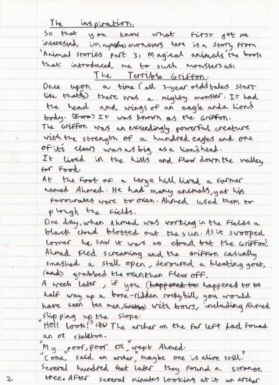 The inspiration.
So that you know what first got me
interested, in mythical creatures here is a story from
'Animal stories part 3: Magical animals' the book
that introduced me to such monsters as:
The Terrible Griffon.
Once upon a time (all 3-year old tales start
like that) there was a mighty monster. It had
the head and wings of an eagle and a lions
body. It was known as the Griffon.
The Griffon was an exceedingly powerful creature
with the strength of a hundred eagles and one
of its claws was as big as a
It lived in the hills and flew down the valley
for food.
At the foot of a large hill lived a farmer
named Ahmed. He had many animals, yet his
favourates were to oxen. Ahmed used them to
plough the fields.
One day, when Ahmed was working in the fields a
black cloud blotted out the sun. As it swooped
lower he saw it was no cloud but the Griffon!
Ahmed fled screaming and the griffon casually
smashed a stall open, devoured a bleating goat,
(and) grabbed the oxen than flew off.
A week later, if you happened to be
half way up a bone-ridden rocky hill, you would
have seen ten men, with bows, including Ahmed
slipping up the slope.
"Hell look!" The archer on the far left had found
an ox skeleton.
"My poor, poor ox," wept Ahmed.
"Come," said an archer, "maybe one is alive still."
Several hundred feet later they found a strange
once. After several minutes looking at it an archer
2